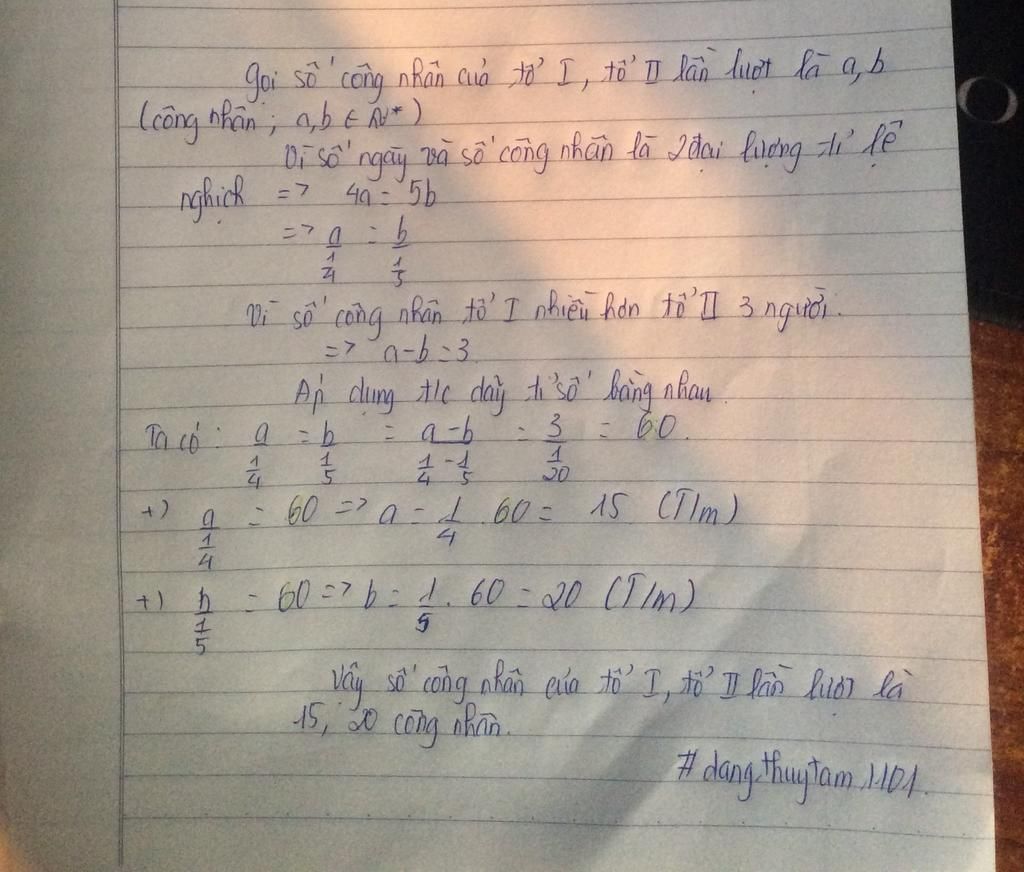 Gọi số công nhân của tổ I, tổ II lần lượt là a,b
(công nhân; a,b ∈ N*)
Vì số ngày và số công nhân là 2 đại lượng tỉ lệ
nghịch => 4a = 5b
=> a/(1/4) = b/(1/5)
Vì số công nhân tổ I nhiều hơn tổ II 3 người.
=> a-b=3
Áp dụng t/c dãy tỉ số bằng nhau.
Ta có: a/(1/4) = b/(1/5) = (a-b)/(1/4 - 1/5) = 3/(1/20) = 60.
+) a/(1/4) = 60 => a = 1/4 . 60 = 15 (T/m)
+) b/(1/5) = 60 => b = 1/5 . 60 = 20 (T/m)
Vậy số công nhân của tổ I, tổ II lần lượt là
15, 20 công nhân.
# dang.thuytam.1101.